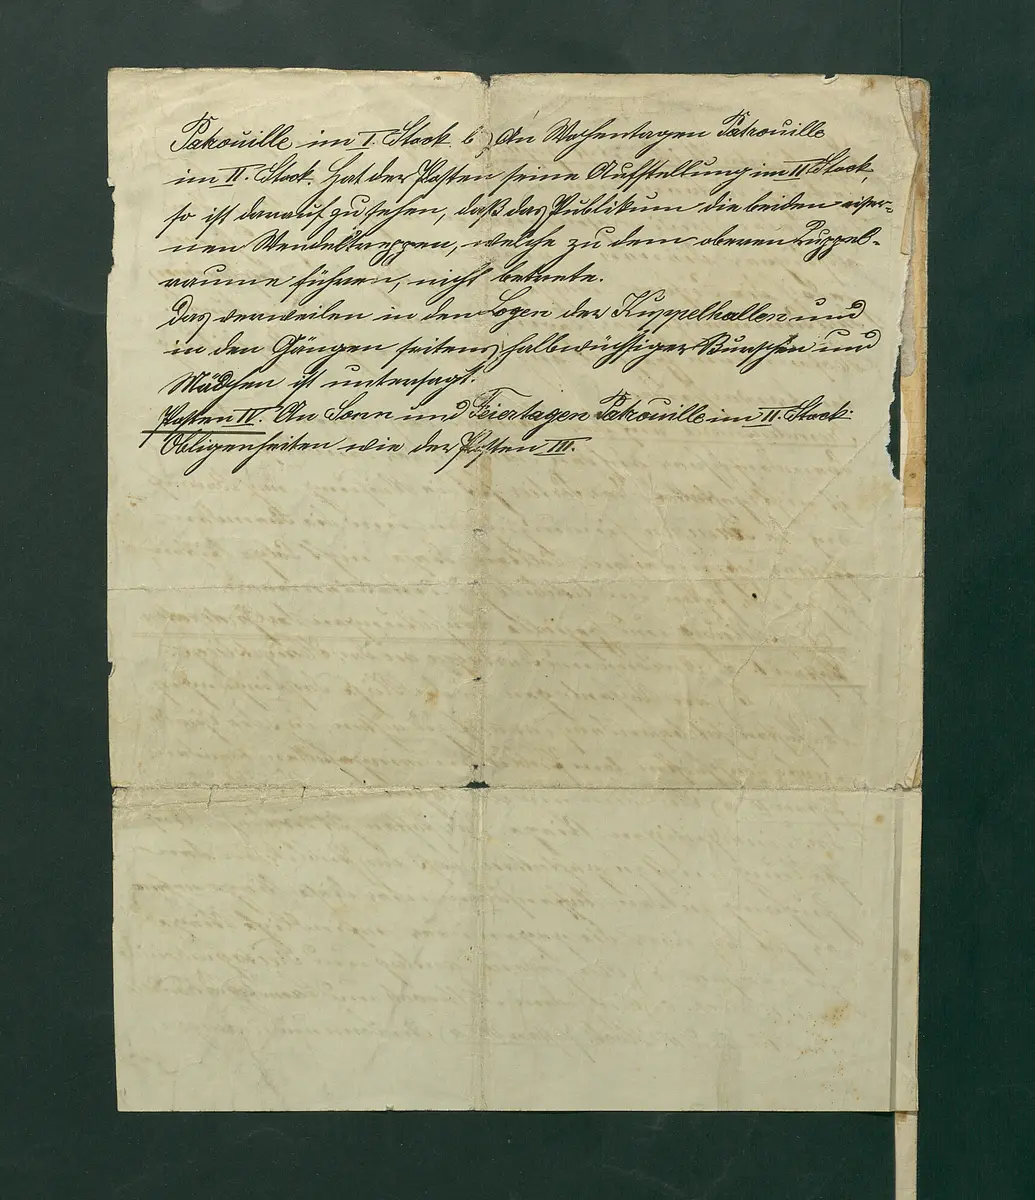 Patrouille im I. Stock b, An Wochentagen Patrouille
im II. Stock. Hat der Posten seine Aufstellung im II Stock,
so ist darauf zu sehen, daß das Publikum die beiden eiser-
nen Wendeltreppen, welche zu dem oberen Kuppel-
raume führen, nicht betrete.
Das verweilen in den Logen der Kuppelhallen und
in den Gängen seitens halbwüchsiger Burschen und
Mädchen ist untersagt.
Posten IV. An Sonn und Feiertagen Patrouille im II. Stock.
Obligenheiten wie der Posten III.